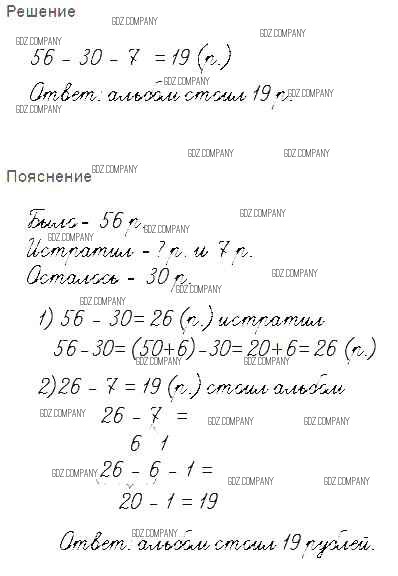 Решение
GDZ.COMPANY
GDZ.COMPANY
GDZ.COMPANY
56 - 30 - 7 = 19 (р.)
GDZ.COMPANY
Ответ: альбом стоил 19 р.
GDZ.COMPANY
GDZ.COMPANY
GDZ.COMPANY GDZ.COMPANY
Пояснение
GDZ.COMPANY
Было - 56 р.
GDZ.COMPANY
GDZ.COMPANY
GDZ.COMPANY
Истратил - ? р. и 7 р.
Осталось - 30 р.
GDZ.COMPANY
GDZ.COMPANY
GDZ.COMPANY
1) 56 - 30 = 26 (р.) истратил
56 - 30 = (50+6) - 30 = 20 + 6 = 26 (р.)
GDZ.COMPANY GDZ.COMPANY
2) 26 - 7 = 19 (р.) стоил альбом
26 - 7 =
GDZ.COMPANY GDZ.COMPANY GDZ.COMPANY
6 1
26 - 6 - 1 =
GDZ.COMPANY GDZ.COMPANY GDZ.COMPANY
20 - 1 = 19
GDZ.COMPANY
Ответ: альбом стоил 19 рублей.
GDZ.COMPANY GDZ.COMPANY GDZ.COMPANY